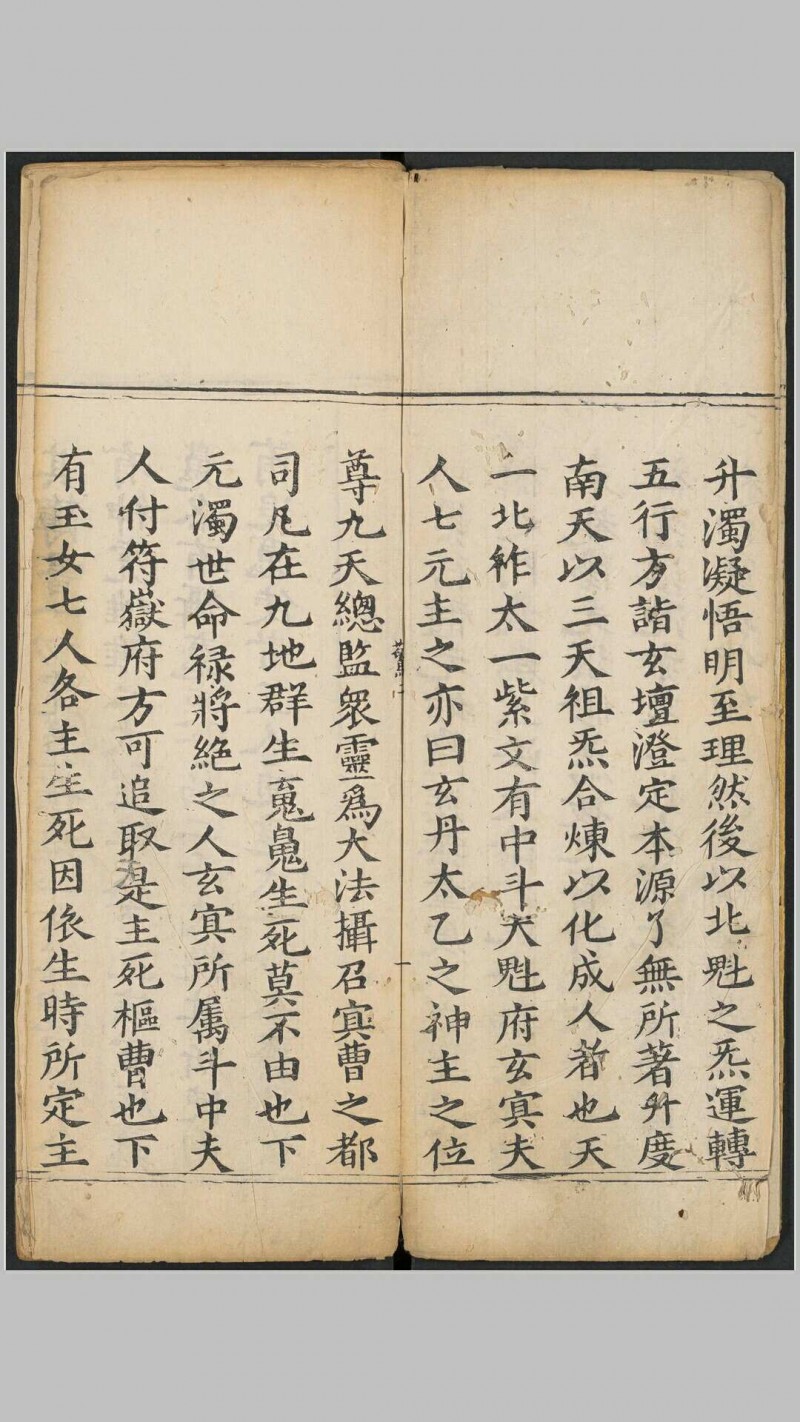 升濁凝悟明至理然後以北魁之炁運轉
五行方詣玄壇澄定本源了無所著升度
南天以三天祖炁合煉以化成人者也天
一北祚太一紫文有中斗大魁府玄冥夫
人七元主之亦曰玄丹太乙之神主之位
尊九天總監衆靈爲大法攝召冥曹之都
司凡在九地群生䰟鬼生死莫不由也下
元濁世命禄將絶之人玄冥所属斗中夫
人付符嶽府方可追取是主死樞曹也下
有玉女七人各主生死因依生時所定主